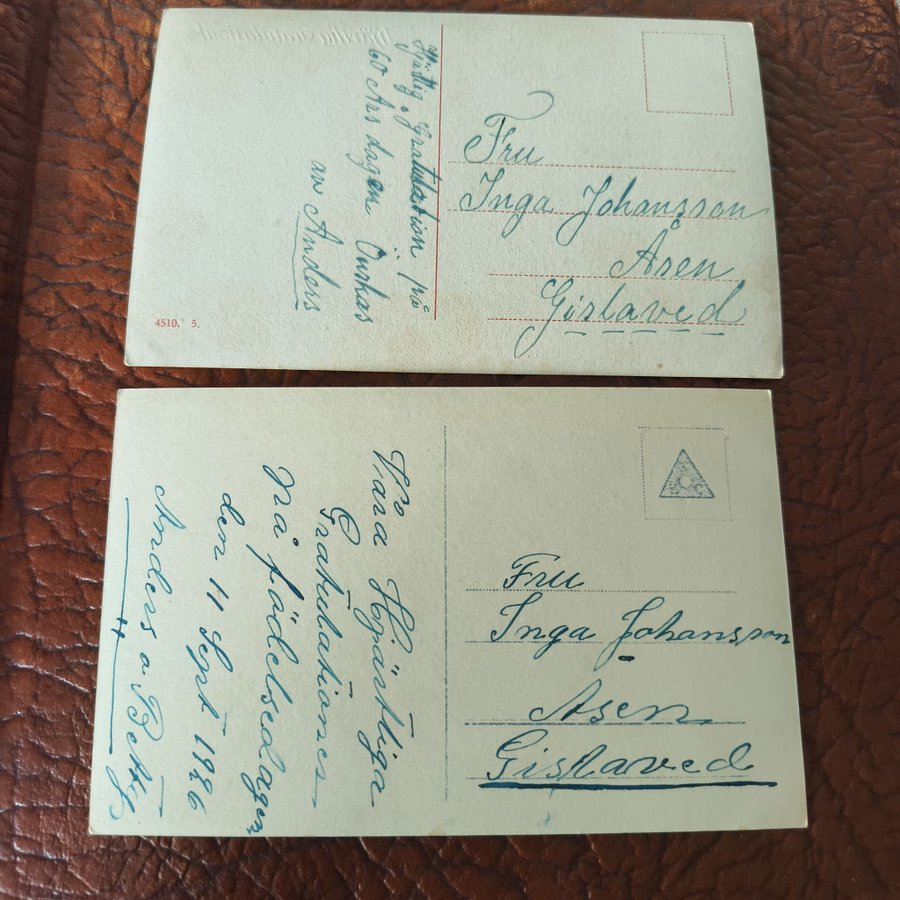 Hjärtlig Gratulation på
60 Års dagen Önskas
av Anders
4510. 5.
Fru
Inga Johansson
Åsen
Gislaved
Våra Hjärtliga
Gratulationer
på födelsedagen
den 11 Sept 1926
Anders o Betty
Fru
Inga Johansson
Åsen
Gislaved